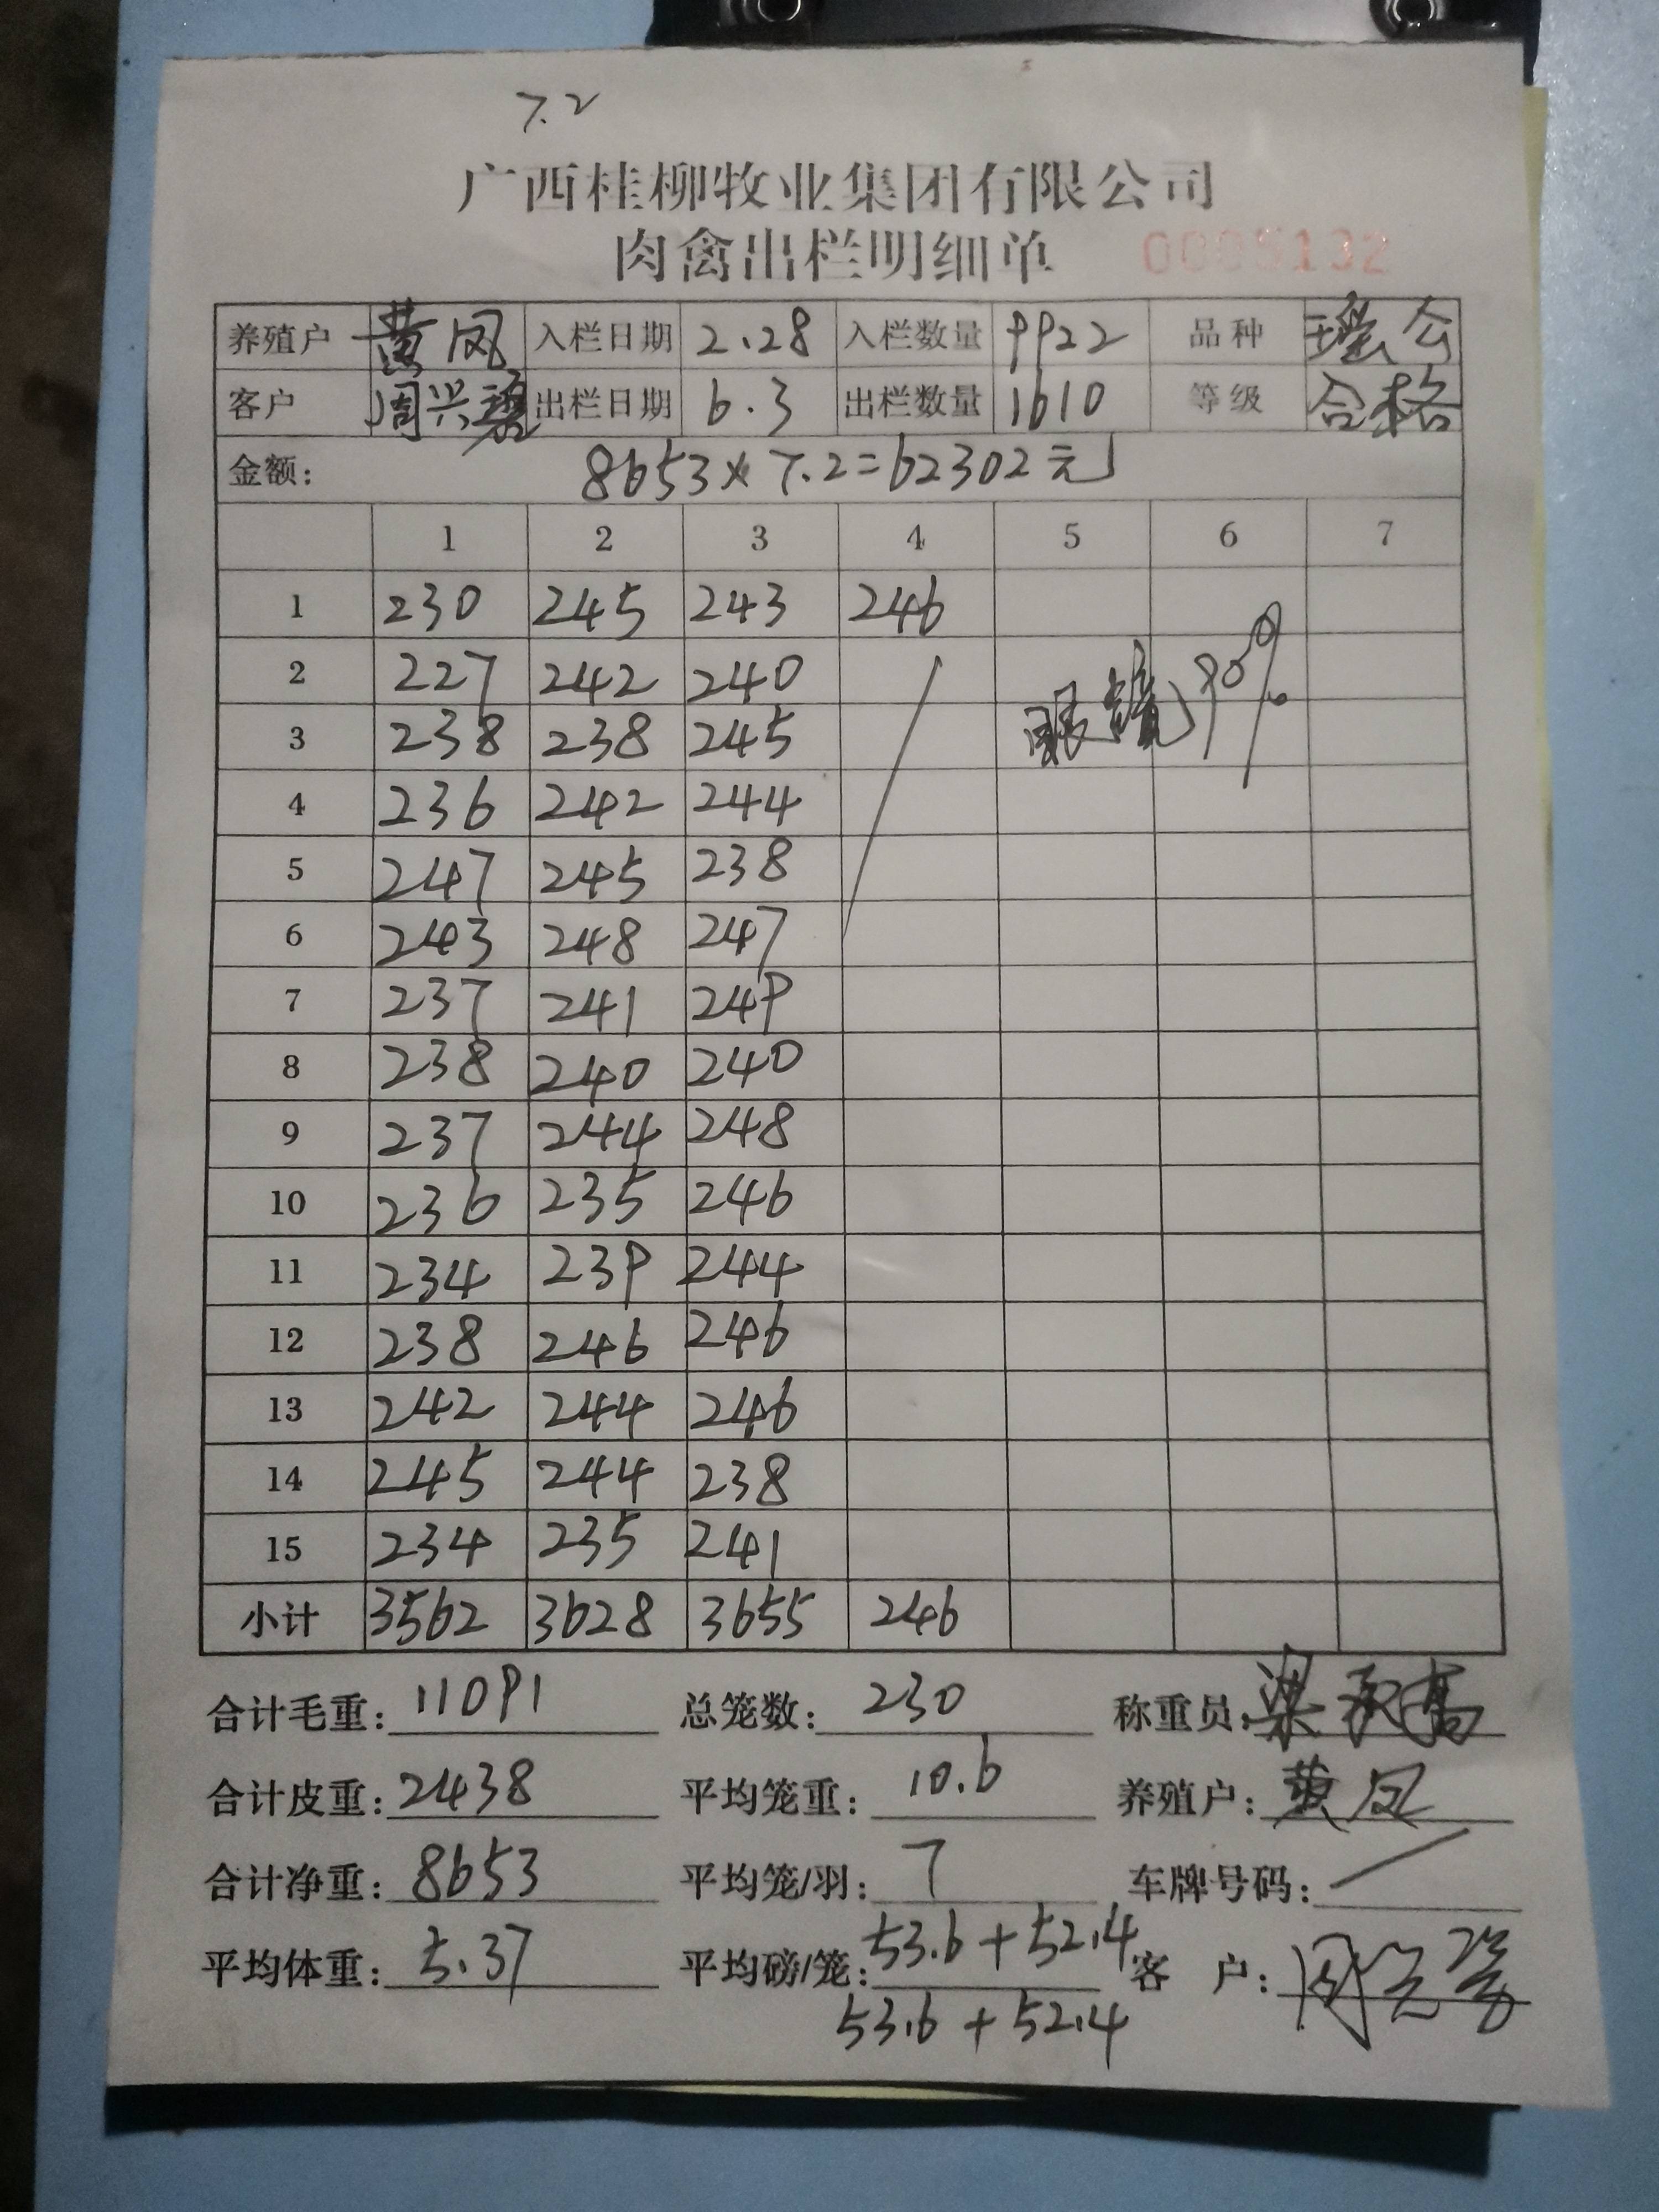 7.2
广西桂柳牧业集团有限公司
肉禽出栏明细单 0005132
养殖户 黄凤 入栏日期 2.28 入栏数量 9922 品种 瑶公
客户 周兴 出栏日期 6.3 出栏数量 1610 等级 合格
金额: 8653×7.2=62302元
1 2 3 4 5 6 7
1 230 245 243 246
2 227 242 240
3 238 238 245 眼镜90%
4 236 242 244
5 247 245 238
6 243 248 247
7 237 241 249
8 238 240 240
9 237 244 248
10 236 235 246
11 234 239 244
12 238 246 246
13 242 244 246
14 245 244 238
15 234 235 241
小计 3562 3628 3655 246
合计毛重: 11091 总笼数: 230 称重员: 梁
合计皮重: 2438 平均笼重: 10.6 养殖户: 黄凤
合计净重: 8653 平均笼/羽: 7 车牌号码: /
平均体重: 5.37 平均磅/笼: 53.6+52.4 客 户: 周
53.6+52.4